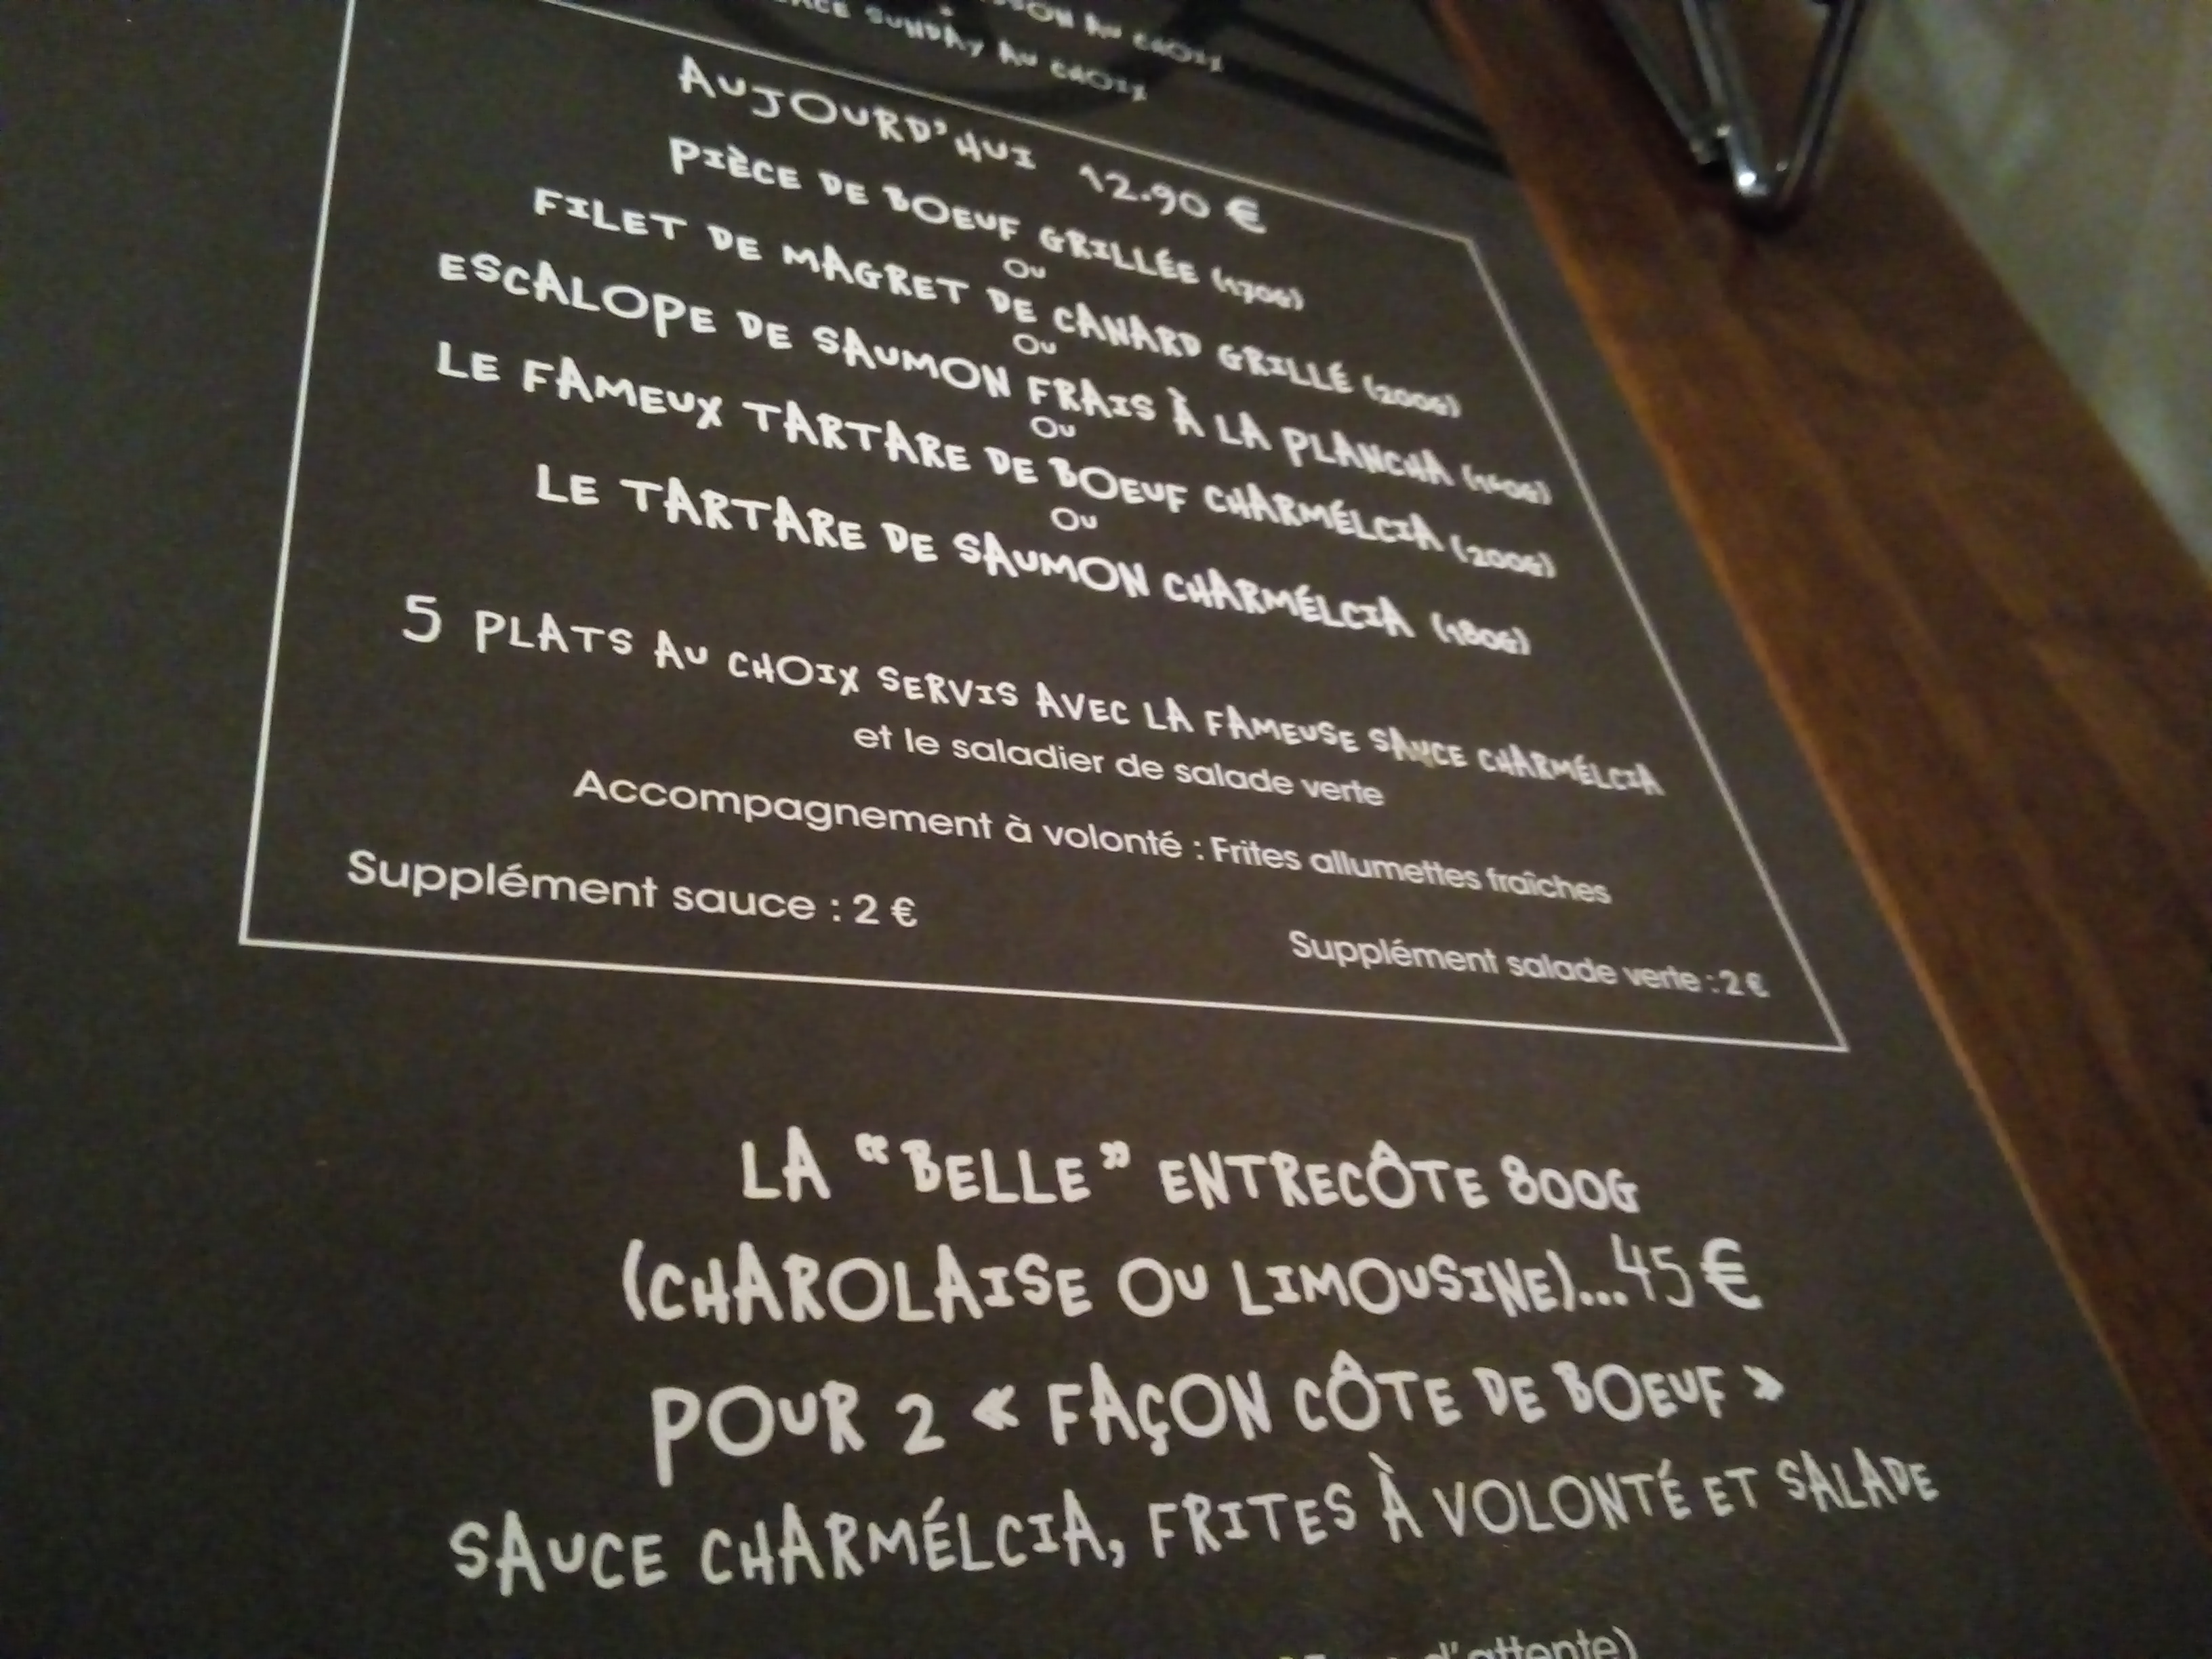 SUNDAY AU CHOIX
AUJOURD'HUI 12.90 €
PIÈCE DE BOEUF GRILLÉE (170G)
OU
FILET DE MAGRET DE CANARD GRILLÉ (200G)
OU
ESCALOPE DE SAUMON FRAIS À LA PLANCHA
OU
LE FAMEUX TARTARE DE BOEUF CHARMÉLCIA (200G)
OU
LE TARTARE DE SAUMON CHARMÉLCIA (180G)
5 PLATS AU CHOIX SERVIS AVEC LA FAMEUSE SAUCE CHARMÉLCIA
et le saladier de salade verte
Accompagnement à volonté : Frites allumettes fraîches
Supplément sauce : 2 €
Supplément salade verte : 2 €
LA "BELLE" ENTRECÔTE 800G
(CHAROLAISE OU LIMOUSINE)...45 €
POUR 2 « FAÇON CÔTE DE BOEUF »
SAUCE CHARMÉLCIA, FRITES À VOLONTÉ ET SALADE
d'attente)